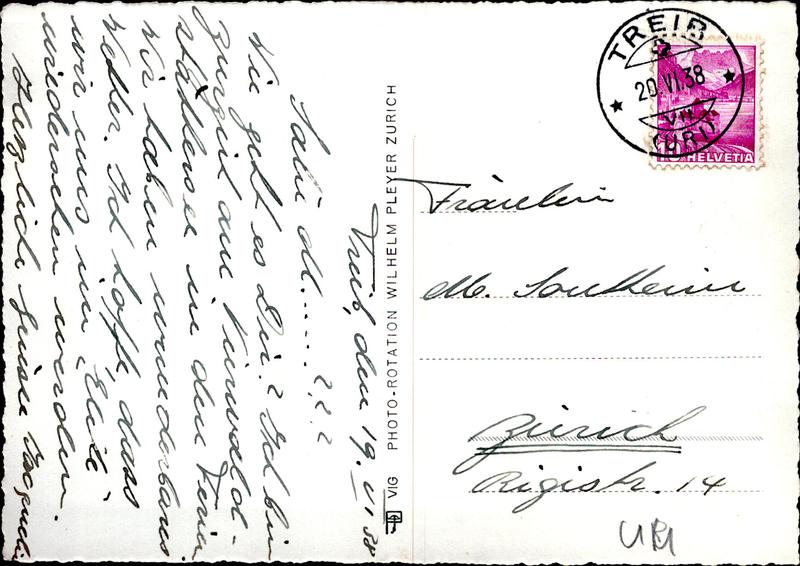 Treib, den 19. VI 38
Salü M.....???
Wie geht es Dir? Ich bin
zurzeit am Vierwald-
stättersee in den Ferien
Wir haben wunderbares
Wetter. Ich hoffe, dass
wir uns im "Elite"
wiedersehen werden.
Herzliche Grüsse
VIG PHOTO-ROTATION WILHELM PLEYER ZURICH
TREIB
20.VI.38
VII
(URI)
10 HELVETIA
Fräulein
M.
Zürich
Rigistr. 14
URI